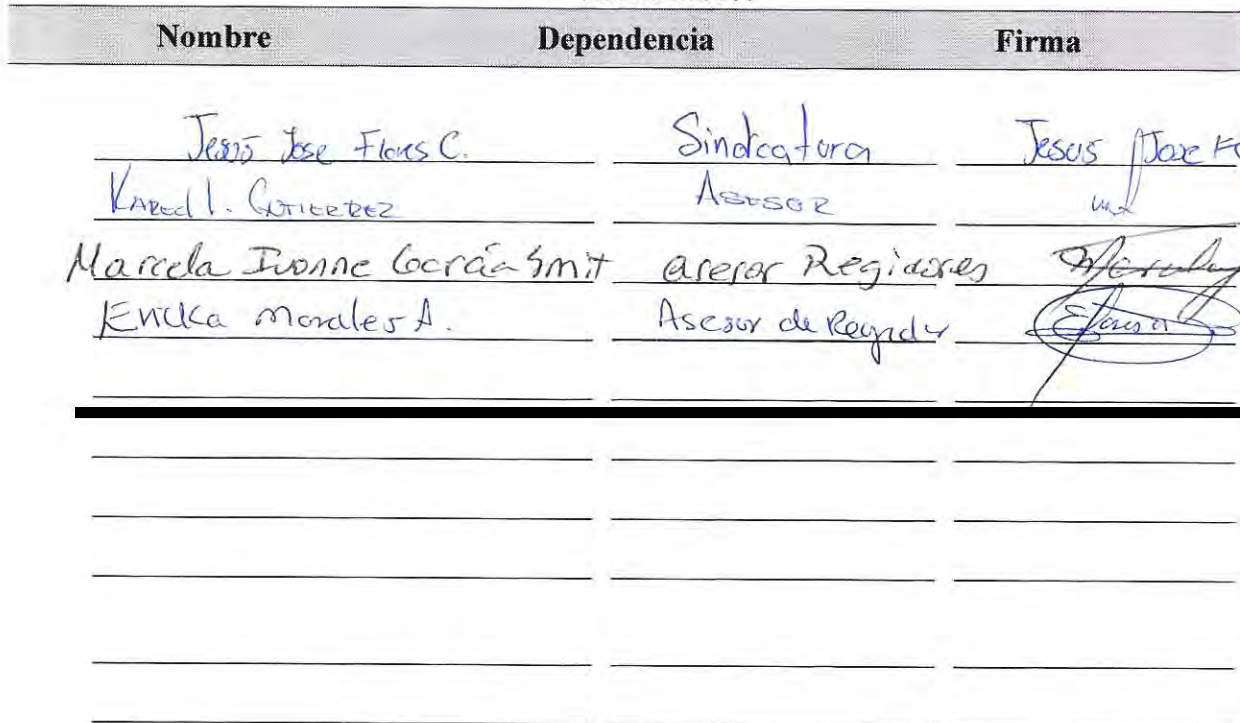 Nombre Dependencia Firma
Jesús Jose Flores C. Sindicatura Jesus Jose
Kared I. Gutierrez Asesor
Marcela Ivonne Smit asesor Regidores
Ericka Morales A. Asesor de Regidor